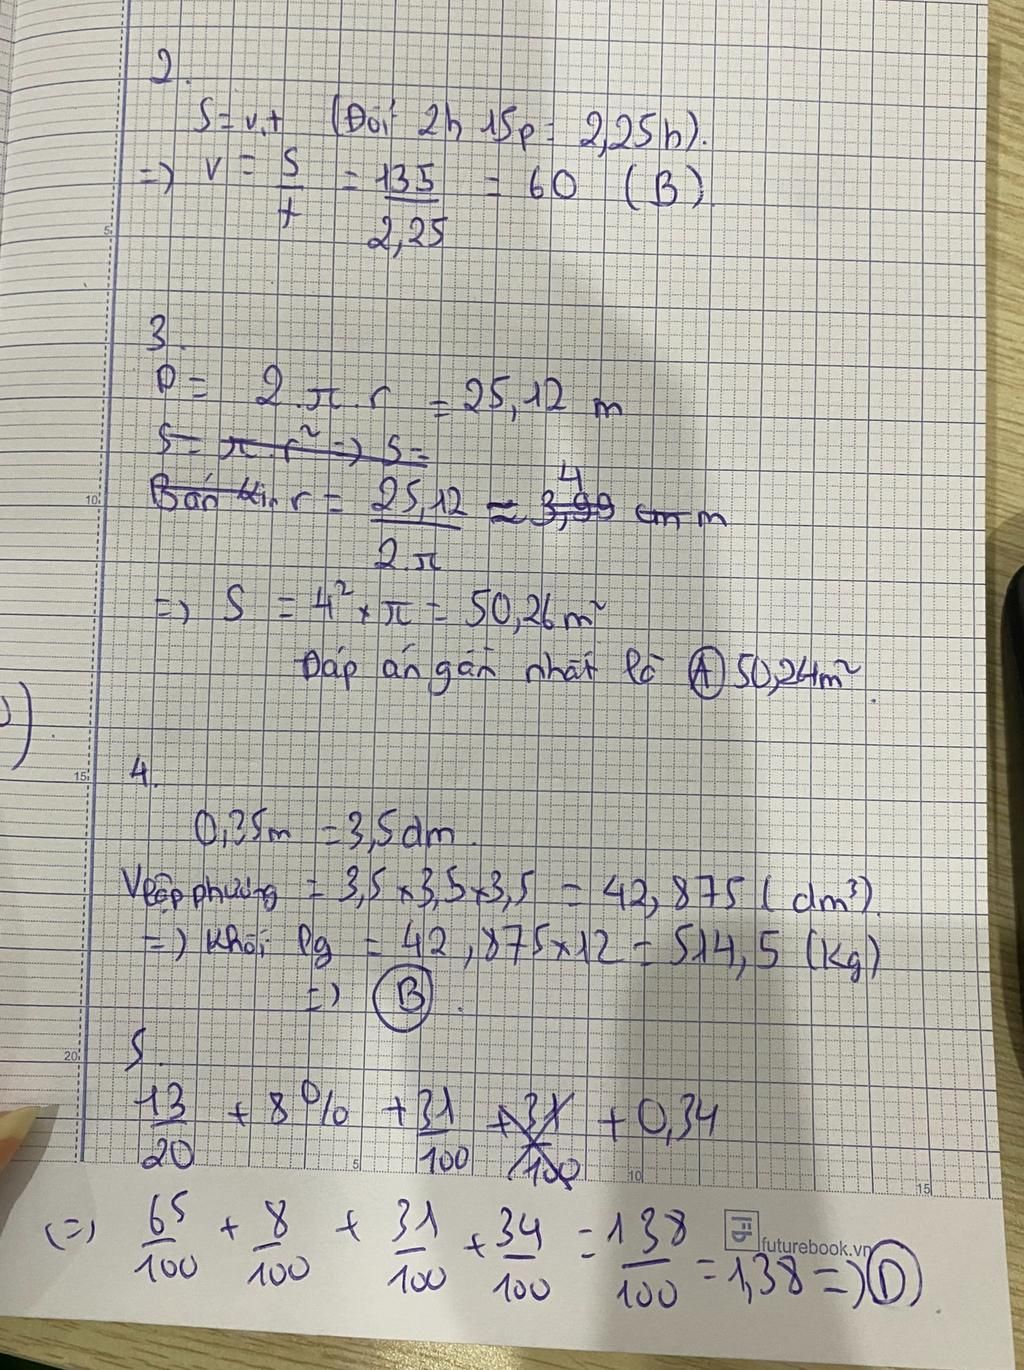 2.
S=v.t (Đổi 2h 15p = 2,25h).
=> v = S/t = 135/2,25 = 60 (B)
5
3.
P = 2.π.r = 25,12 m
S = π.r² => S =
Bán kín r = 25,12/2.π ≈ 3,99 4 cm m
10
=> S = 4² × π = 50,26m²
Đáp án gần nhất là (A) 50,24m².
4.
15
0,35m = 3,5dm.
Vlập phương = 3,5×3,5×3,5 = 42,875 (dm³).
=> Khối lg = 42,875×12 = 514,5 (kg)
=> (B).
5.
20
13/20 + 8% + 31/100 + 31/100 + 0,34
5 10 15
(=) 65/100 + 8/100 + 31/100 + 34/100 = 138/100 = 1,38 => (D).
futurebook.vn